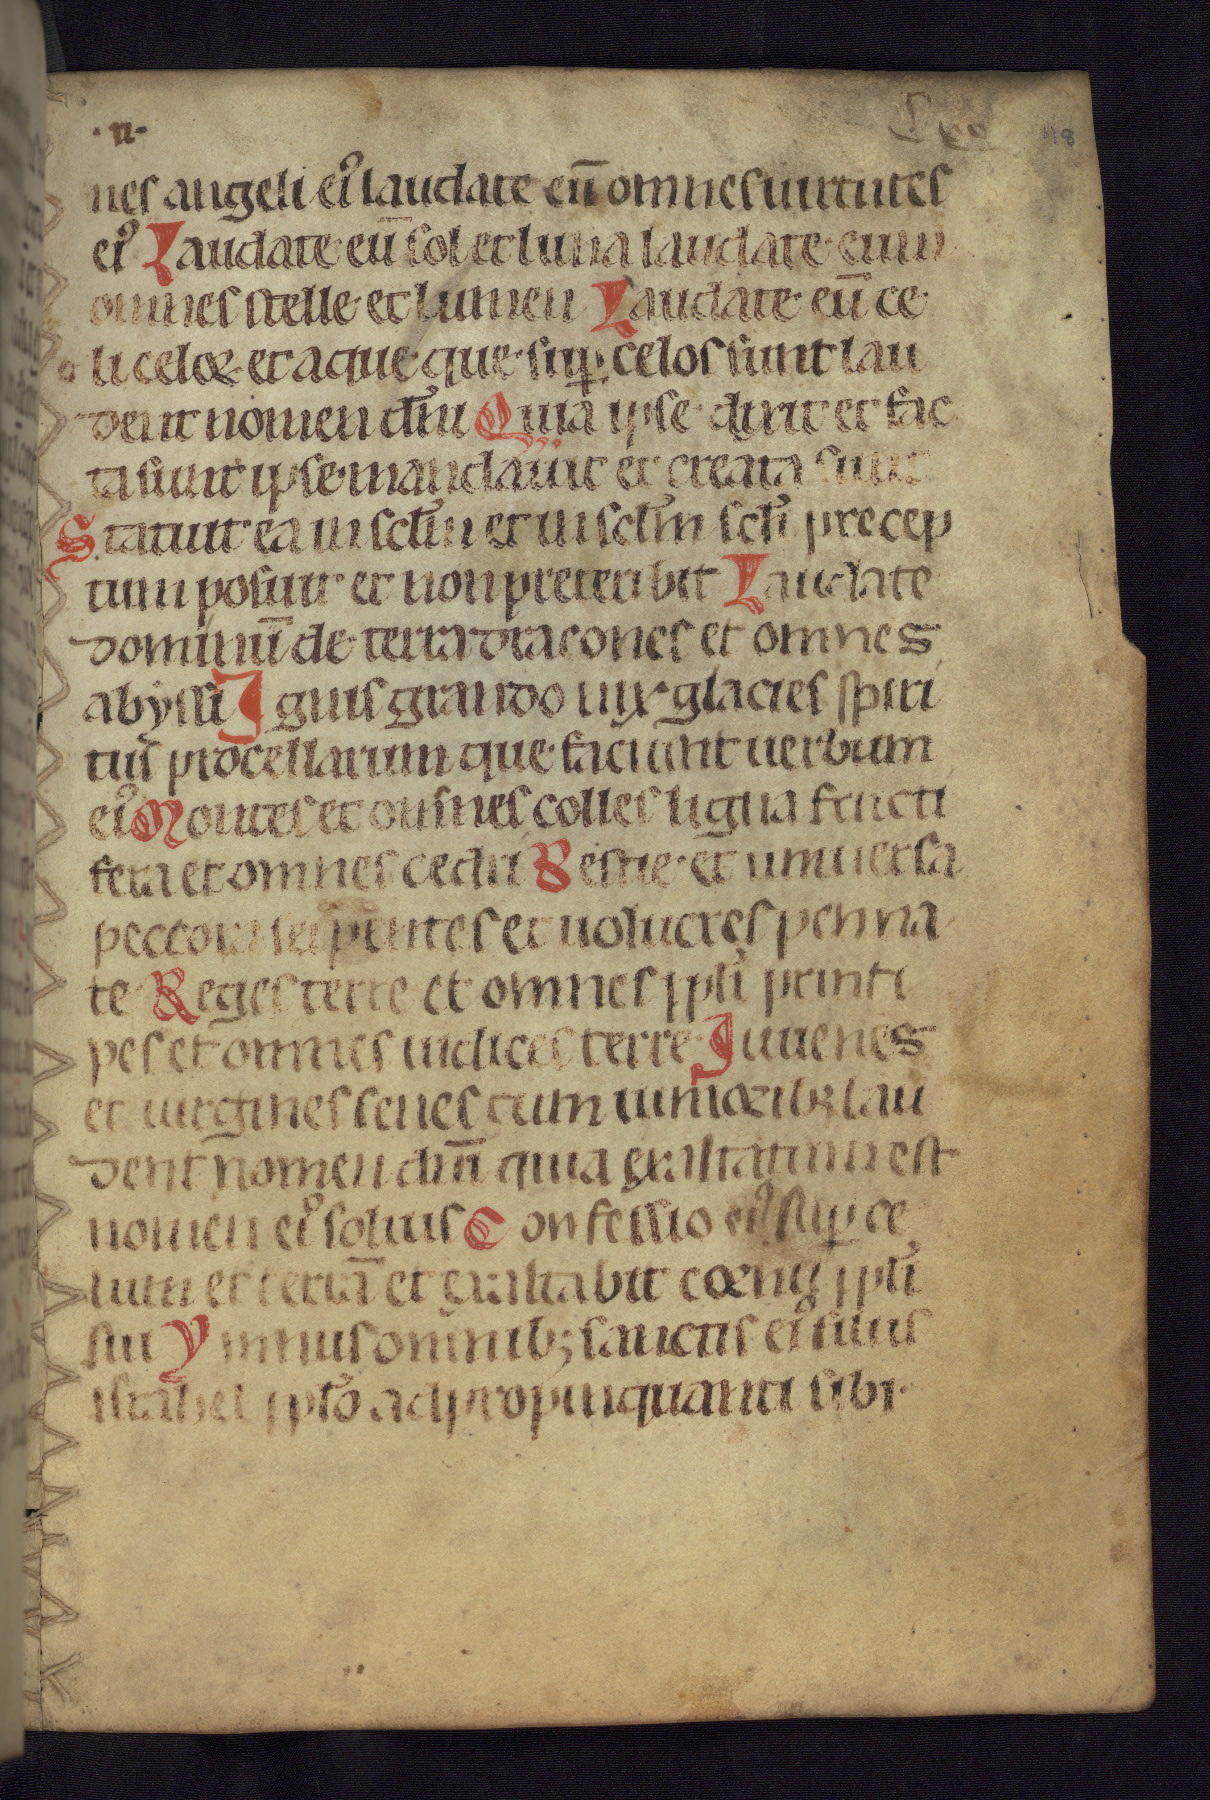 ·n·
118
nes angeli ei᾽ laudate eū omnes uirtutes
ei᾽ Laudate eū sol et luna laudate eum
omnes stelle et lumen Laudate eū ce
li celoꝝ et aque que sup̱ celos sunt lau
dent nomen dn̄i Quia ipse dixit et fac
ta sunt ipse mandauit et creata sunt
Statuit ea in sclm̄ et in sclm̄ scli̅ precep
tum posuit et non preteribit Laudate
dominū de terra dracones et omnes
abyssi Ignis grando nix glacies spiri
tus procellarum que faciunt uerbum
ei᾽ Montes et omnes colles ligna fructi
fera et omnes cedri Bestie et uniuersa
peccora serpentes et uolucres penna
te Reges terre et omnes ppli̅ princi
pes et omnes iudices terre Iuuenes
et uirgines senes cum iunioribꝫ lau
dent nomen dn̄i quia exaltatum est
nomen ei᾽ solius Confessio ei᾽ sup̱ ce
lum et terrā et exaltabit cornu ppli̅
sui Ymnus omnibꝫ sanctis ei᾽ filiis
israhel pplo̅ adpropinquanti sibi·